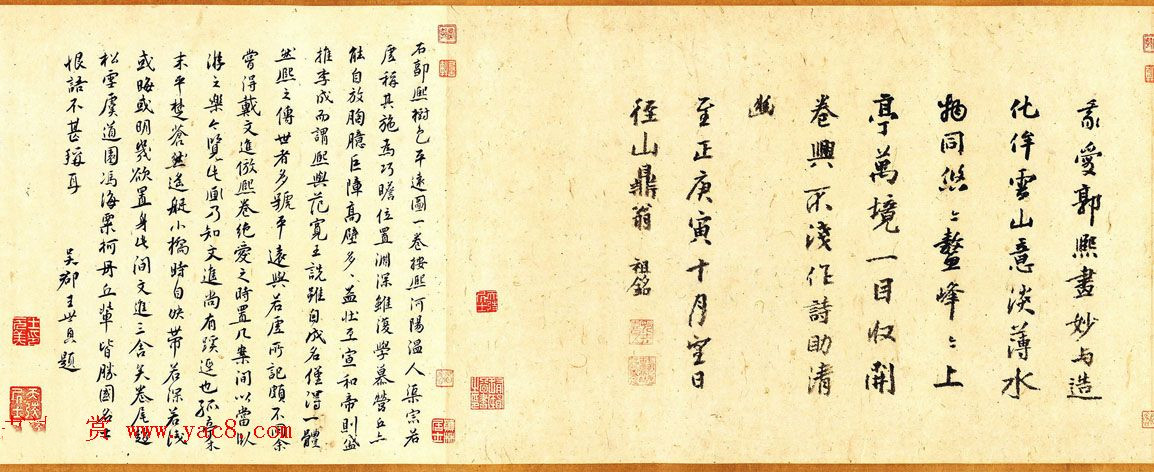 我愛郭熙畫妙与造
化侔雲山意淡薄水
物同悠〻鼇峰〻上
亭萬境一目収開
卷興不淺作詩助清
幽
至正庚寅十月望日
徑山鼎翁 祖銘
右郭熙樹色平遠圖一卷按熙河陽温人渠宗若
虛稱其施為巧贍位置淵深雖復學慕營丘亦
能自放胸臆巨障高壁多〻益壯至宣和帝則盛
推李成而謂熙與范寬王詵雖自成名僅得一體
然熙之傳世者多號平遠與若虛所記頗不同余
嘗得戴文進倣熙卷絕愛之時置几案間以當臥
游之樂今覽此圖乃知文進尚有蹊逕也孤
末平楚蒼然遙艇小橋時自映帶若深若淺
或晦或明幾欲置身此間文進三舍矣卷尾趙
松雪虞道園馮海粟柯丹丘輩皆勝國名士
恨語不甚稱耳
吳郡王世貞題
赏 www.yac8.com